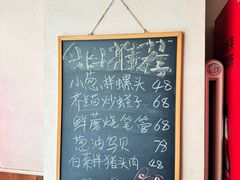 今日推荐
小葱拌螺头 48
芥兰炒蛏子 68
鲜蘑烧笔管 68
葱油鸟贝 78
白菜拌猪头肉 48